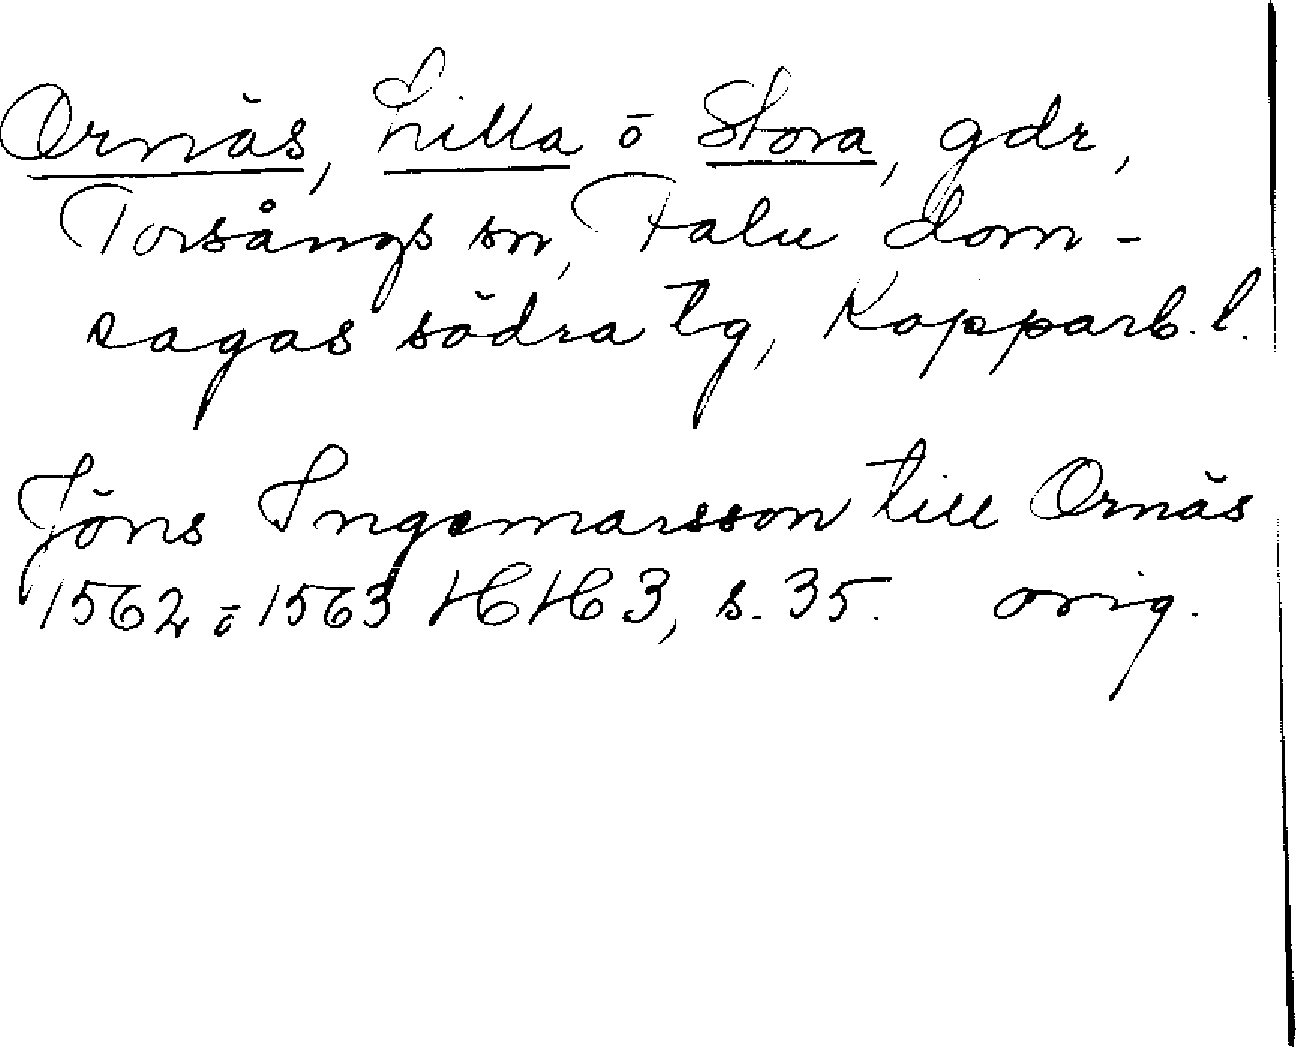 Ornäs, Lilla o Stora, gdr,
Torsångs sn, Falu dom-
sagas södra tg, Kopparb. l.
Jöns Ingemarsson till Ornäs
1562 o 1563 HH 3, s. 35. orig.